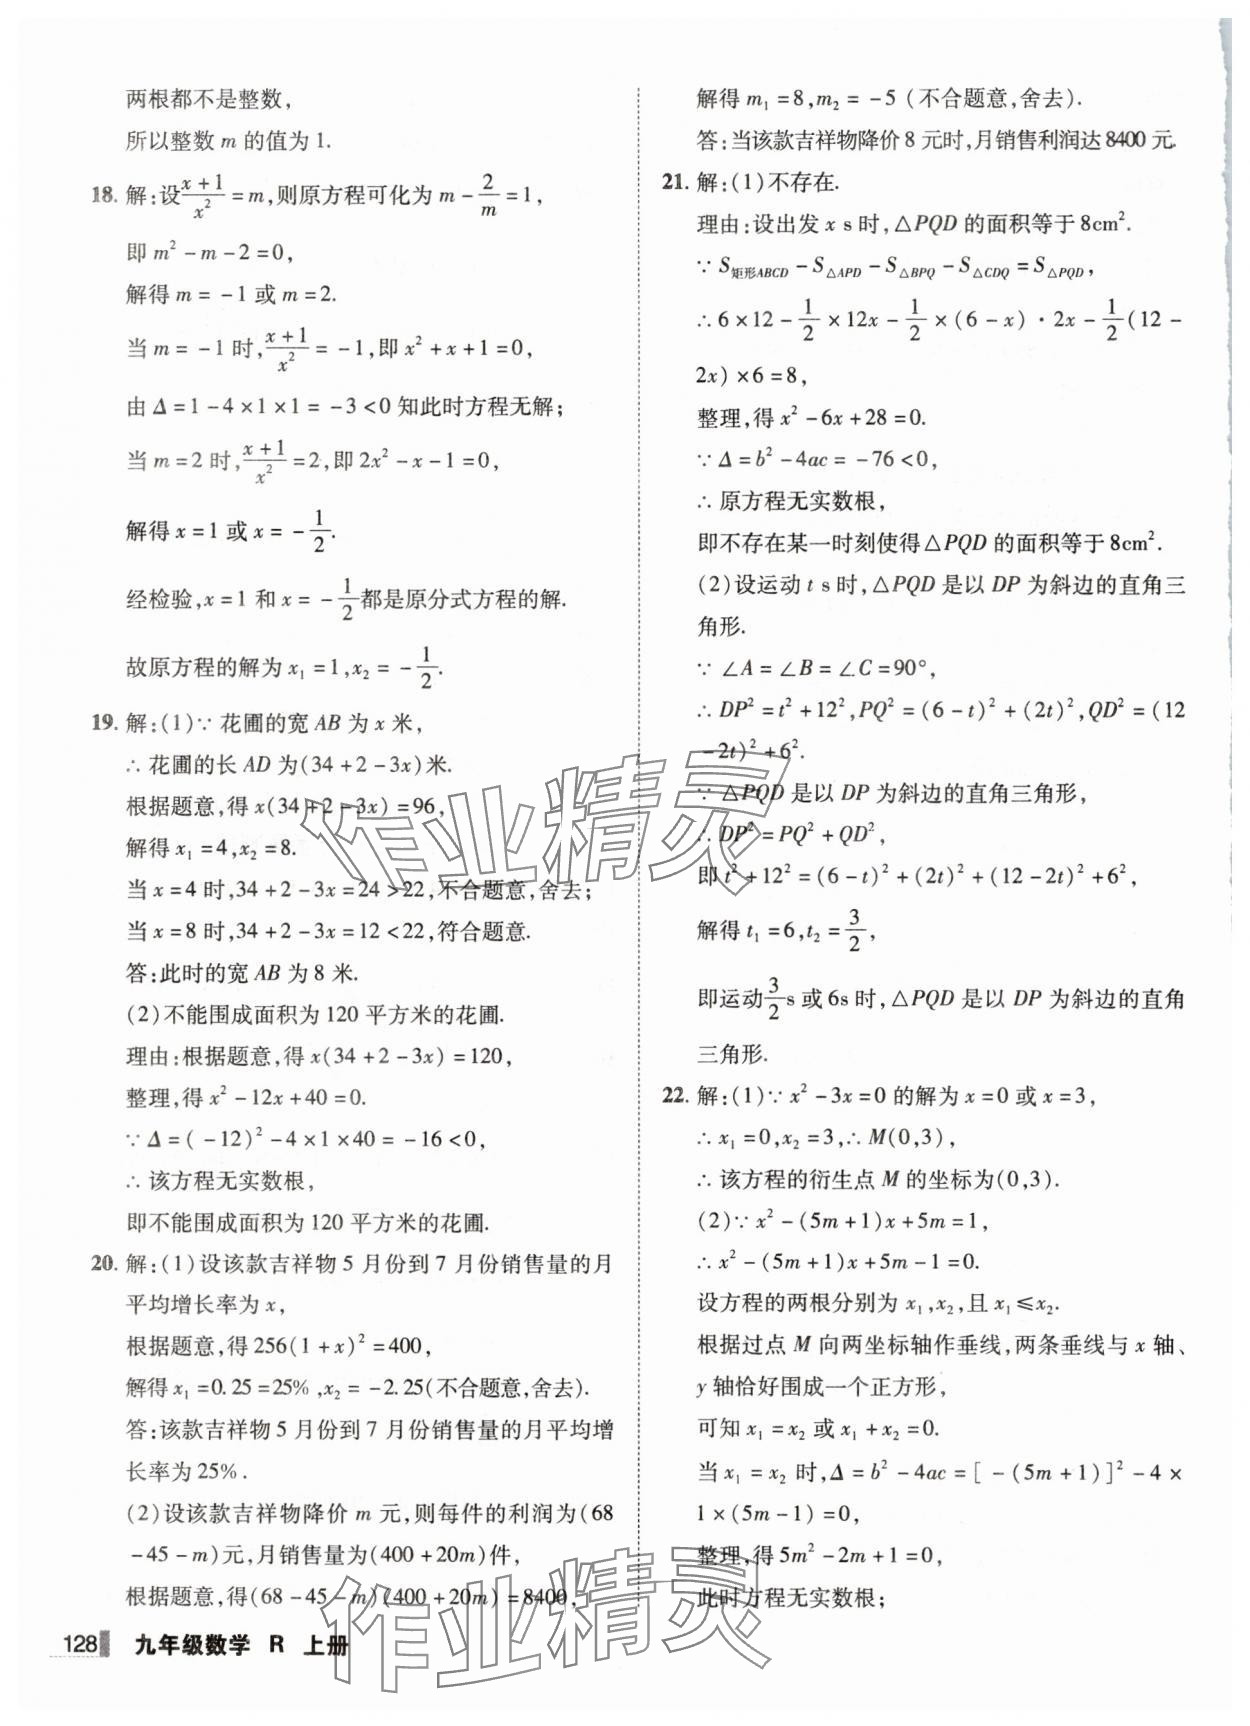 两根都不是整数,
所以整数 m 的值为 1.
18. 解:设(x+1)/x²=m,则原方程可化为 m-2/m=1,
即 m²-m-2=0,
解得 m=-1 或 m=2.
当 m=-1 时,(x+1)/x²=-1,即 x²+x+1=0,
由 Δ=1-4×1×1=-3<0 知此时方程无解;
当 m=2 时,(x+1)/x²=2,即 2x²-x-1=0,
解得 x=1 或 x=-1/2.
经检验,x=1 和 x=-1/2都是原分式方程的解.
故原方程的解为 x₁=1,x₂=-1/2.
19. 解:(1)∵花圃的宽 AB 为 x 米,
∴花圃的长 AD 为(34+2-3x)米.
根据题意,得 x(34+2-3x)=96,
解得 x₁=4,x₂=8.
当 x=4 时,34+2-3x=24>22,不合题意,舍去;
当 x=8 时,34+2-3x=12<22,符合题意.
答:此时的宽 AB 为 8 米.
(2)不能围成面积为 120 平方米的花圃.
理由:根据题意,得 x(34+2-3x)=120,
整理,得 x²-12x+40=0.
∵Δ=(-12)²-4×1×40=-16<0,
∴该方程无实数根,
即不能围成面积为 120 平方米的花圃.
20. 解:(1)设该款吉祥物 5 月份到 7 月份销售量的月
平均增长率为 x,
根据题意,得 256(1+x)²=400,
解得 x₁=0.25=25%,x₂=-2.25(不合题意,舍去).
答:该款吉祥物 5 月份到 7 月份销售量的月平均增
长率为 25%.
(2)设该款吉祥物降价 m 元,则每件的利润为(68
-45-m)元,月销售量为(400+20m)件,
根据题意,得(68-45-m)(400+20m)=8400,
解得 m₁=8,m₂=-5(不合题意,舍去).
答:当该款吉祥物降价 8 元时,月销售利润达 8400 元.
21. 解:(1)不存在.
理由:设出发 x s 时,△PQD 的面积等于 8cm².
∵S矩形ABCD-S△APD-S△BPQ-S△CDQ=S△PQD,
∴6×12-1/2×12x-1/2×(6-x)·2x-1/2(12-
2x)×6=8,
整理,得 x²-6x+28=0.
∵Δ=b²-4ac=-76<0,
∴原方程无实数根,
即不存在某一时刻使得△PQD 的面积等于 8cm².
(2)设运动 t s 时,△PQD 是以 DP 为斜边的直角三
角形.
∵∠A=∠B=∠C=90°,
∴DP²=t²+12²,PQ²=(6-t)²+(2t)²,QD²=(12
-2t)²+6².
∵△PQD 是以 DP 为斜边的直角三角形,
∴DP²=PQ²+QD²,
即 t²+12²=(6-t)²+(2t)²+(12-2t)²+6²,
解得 t₁=6,t₂=3/2,
即运动3/2s 或 6s 时,△PQD 是以 DP 为斜边的直角
三角形.
22. 解:(1)∵x²-3x=0 的解为 x=0 或 x=3,
∴x₁=0,x₂=3,∴M(0,3),
∴该方程的衍生点 M 的坐标为(0,3).
(2)∵x²-(5m+1)x+5m=1,
∴x²-(5m+1)x+5m-1=0.
设方程的两根分别为 x₁,x₂,且 x₁≤x₂.
根据过点 M 向两坐标轴作垂线,两条垂线与 x 轴、
y 轴恰好围成一个正方形,
可知 x₁=x₂ 或 x₁+x₂=0.
当 x₁=x₂ 时,Δ=b²-4ac=[-(5m+1)]²-4×
1×(5m-1)=0,
整理,得 5m²-2m+1=0,
此时方程无实数根;
128 九年级数学 R 上册
作业精灵
作业精灵